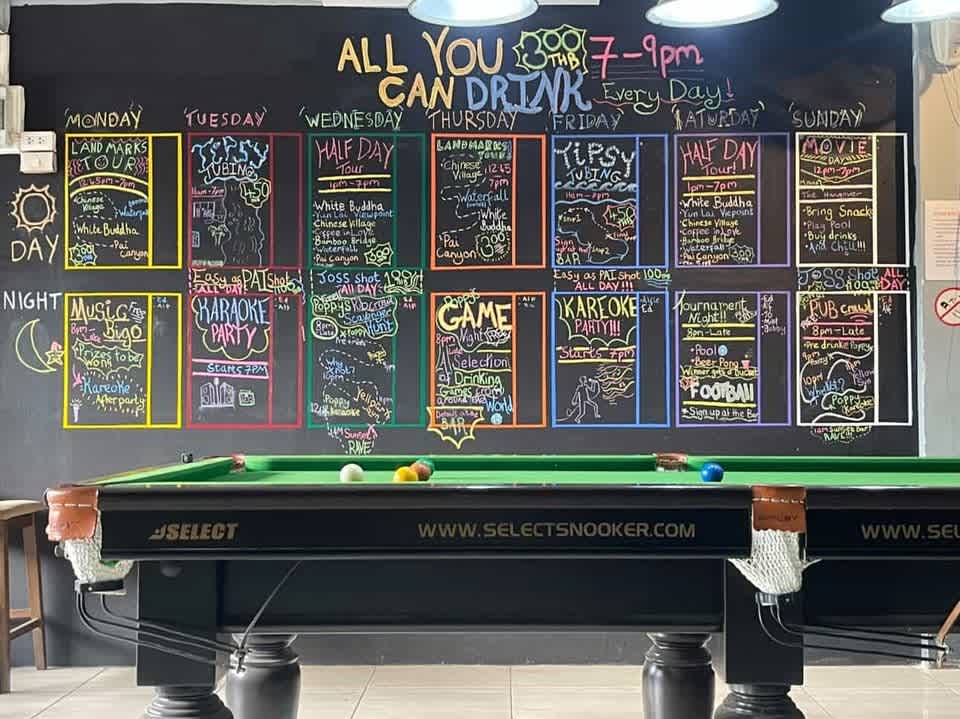 ALL YOU 300 THB 7-9pm
CAN DRINK Every Day!
MONDAY TUESDAY WEDNESDAY THURSDAY FRIDAY SATURDAY SUNDAY
DAY
LANDMARKS
TOUR
12:45pm-7pm
Chinese
Village
Waterfall
White Buddha
Pai
Canyon
TIPSY
TUBING
11am-7pm
450
HALF DAY
Tour
1pm-7pm
White Buddha
Yun Lai Viewpoint
Chinese Village
Coffee in Love
Bamboo Bridge
Waterfall
Pai Canyon
LANDMARKS
Chinese
Village
12:45
7pm
Waterfall
White
Buddha
Pai
Canyon
300
TIPSY
TUBING
11am-7pm
450
Sign
BAR
HALF DAY
Tour!
1pm-7pm
White Buddha
Yun Lai Viewpoint
Chinese Village
Coffee in Love
Bamboo Bridge
Waterfall
Pai Canyon
MOVIE
DAY
12pm-7pm
The Hangover
Bring Snacks
Play Pool
Buy drinks
And Chill!!!
Easy as PAI Shot
ALL DAY
JOSS Shot
ALL DAY
Easy as PAI Shot 100
ALL DAY!!!
JOSS Shot ALL DAY!
NIGHT
MUSIC
Bingo
8pm-Late
Prizes to be
won
Kareoke
Afterparty
KARAOKE
PARTY
Starts 7PM
Poppys Pubcrawl
Scavenger
Hunt
8pm
Late
Why
Not?
10pm
Yellow Sun
12am
Poppy
Karaoke
1AM Sunset
RAVE
Poppys
GAME
8pm Night
Late
A Selection
of Drinking
Games from
around the World
Details at the
BAR
KAREOKE
PARTY!!!
Starts 7pm
Tournament
Night!!
8pm-Late
Pool
Beer Pong
Winner gets a Bucket
FOOTBALL
Sign up at the Bar
PUB crawl
8pm-Late
Pre drinks Poppys
10pm
Why Not?
Yellow
Sun
Poppy
Karaoke
1am Sunset Bar
RAVE!!!
SELECT WWW.SELECTSNOOKER.COM WWW.SEL